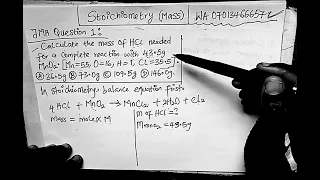 Stoichiometry (Mass)
WA 07013466657
JMA Question 1:
Calculate the mass of HCl needed
for a complete reaction with 43.5g
MnO₂. [Mn=55, O=16, H=1, Cl=35.5]
Ⓐ 36.5g Ⓑ 73.0g Ⓒ 109.5g Ⓓ 146.0g.
In stoichiometry, balance equation first.
4HCl + MnO₂ → MnCl₂ + 2H₂O + Cl₂
Mass = mole x M
m of HCl = ?
MMnO₂ = 43.5g